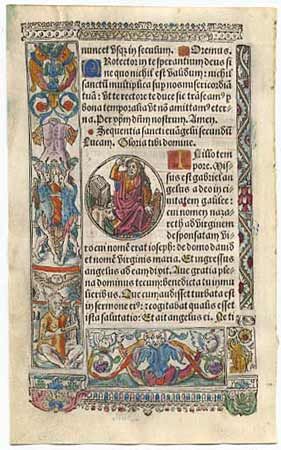 nunc et vsq3 in seculum. Oremus.
Protector in te sperantium deus si
ne quo nichil est validum: nichil
sanctũ multiplica sup nos misericordiã
tuã: vt te rectore te duce sic trãseam9 p
bona temporalia vt nõ amittam9 eterna.
Per xpm dñm nostrum. Amen.
Sequentia sancti euãgelii secundum
Lucam. Gloria tibi domine.
In illo tem
pore. Mis
sus est gabriel an
gelus a deo in ci
uitatem galilee:
cui nomen naza
reth ad virginem
desponsatam vi
ro cui nomẽ erat ioseph: de domo dauid
et nomẽ virginis maria. Et ingressus
angelus ad eam dixit. Aue gratia ple
na dominus tecum: benedicta tu in mu
lieribus. Que cum audisset turbata est
in sermone ei9: et cogitabat qualis esset
ista salutatio: Et ait angelus ei. Ne ti